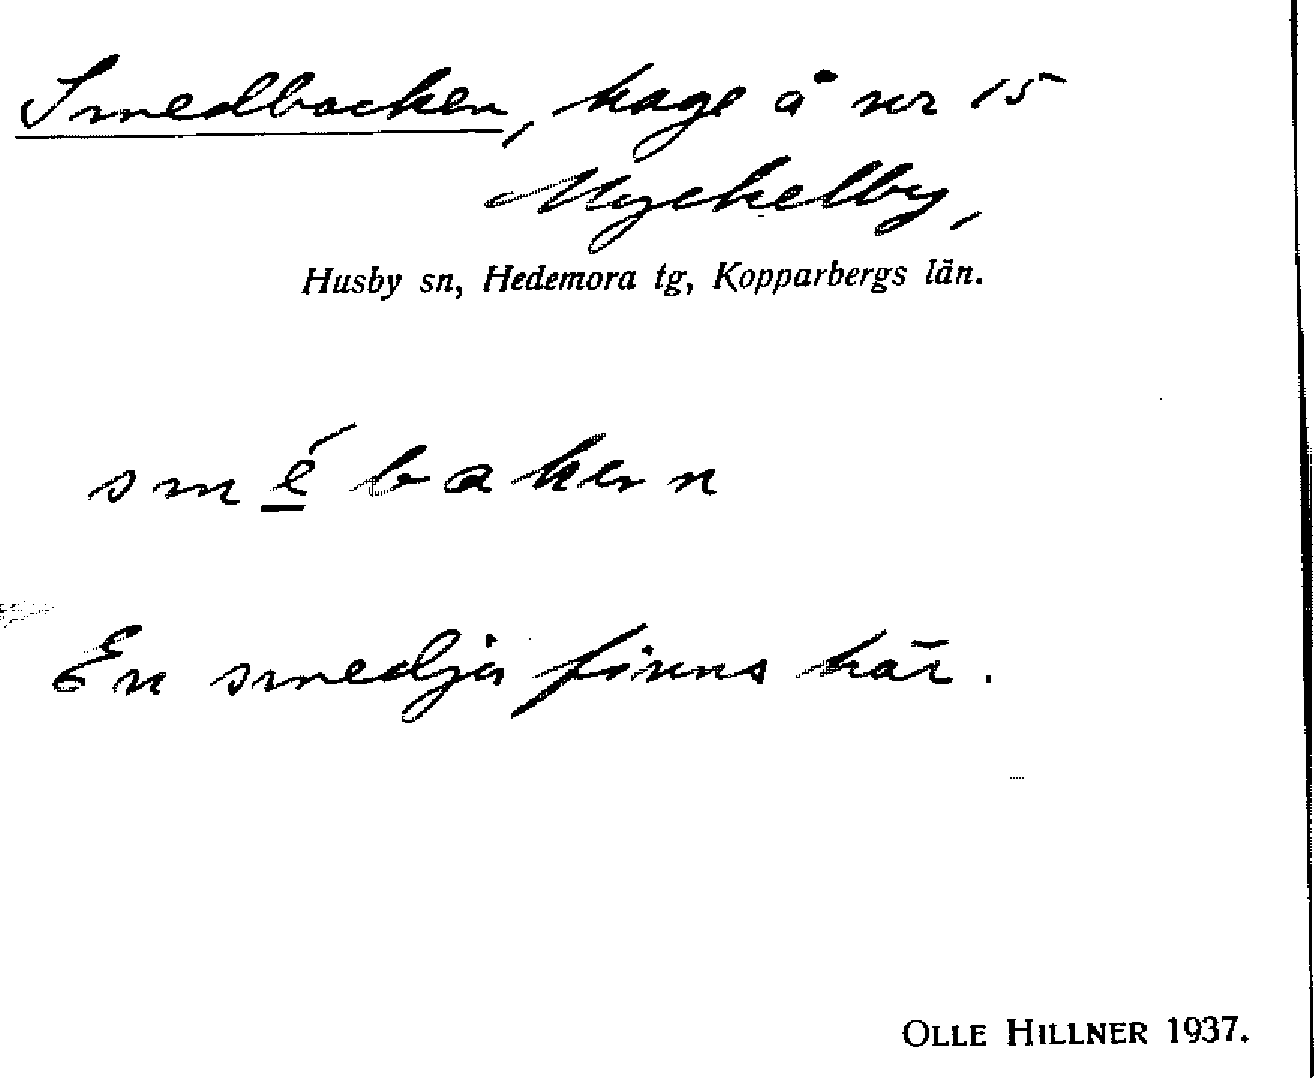 Smedbacken, hage å nr 15
Myckelby,
Husby sn, Hedemora tg, Kopparbergs län.
smébaken
En smedja finns här.
OLLE HILLNER 1937.